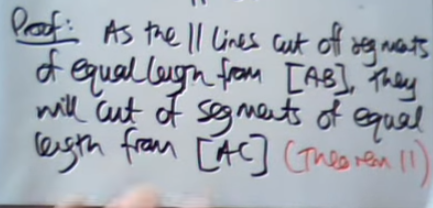 Proof: As the || lines cut off segments
of equal lengh from [AB], they
will cut of segments of equal
length from [AC] (Theorem 11)